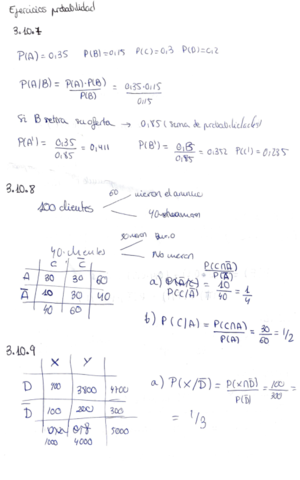 Ejercicios probabilidad
3.10.7
P(A)=0,35 P(B)=0,15 P(C)=0,3 P(D)=0,2
P(A/B) = P(A)·P(B) / P(B) = 0,35·0,15 / 0,15
Si B retira su oferta → 0,85 (suma de probabilidades)
P(A') = 0,35 / 0,85 = 0,411 P(B') = 0,3 / 0,85 = 0,352 P(C') = 0,235
3.10.8
60 vieron el anuncio
100 clientes
40
40 clientes
No vieron
C C̅
A 30 30 60
A̅ 10 30 40
40 60
a) P(C/A̅) = P(C∩A̅) / P(A̅) = 10/40 = 1/4
b) P(C/A) = P(C∩A) / P(A) = 30/60 = 1/2
3.10.9
X Y
D 3800 4700
D̅ 100 200 300
1000 4000 5000
a) P(X/D̅) = P(X∩D̅) / P(D̅) = 100/300 =
= 1/3